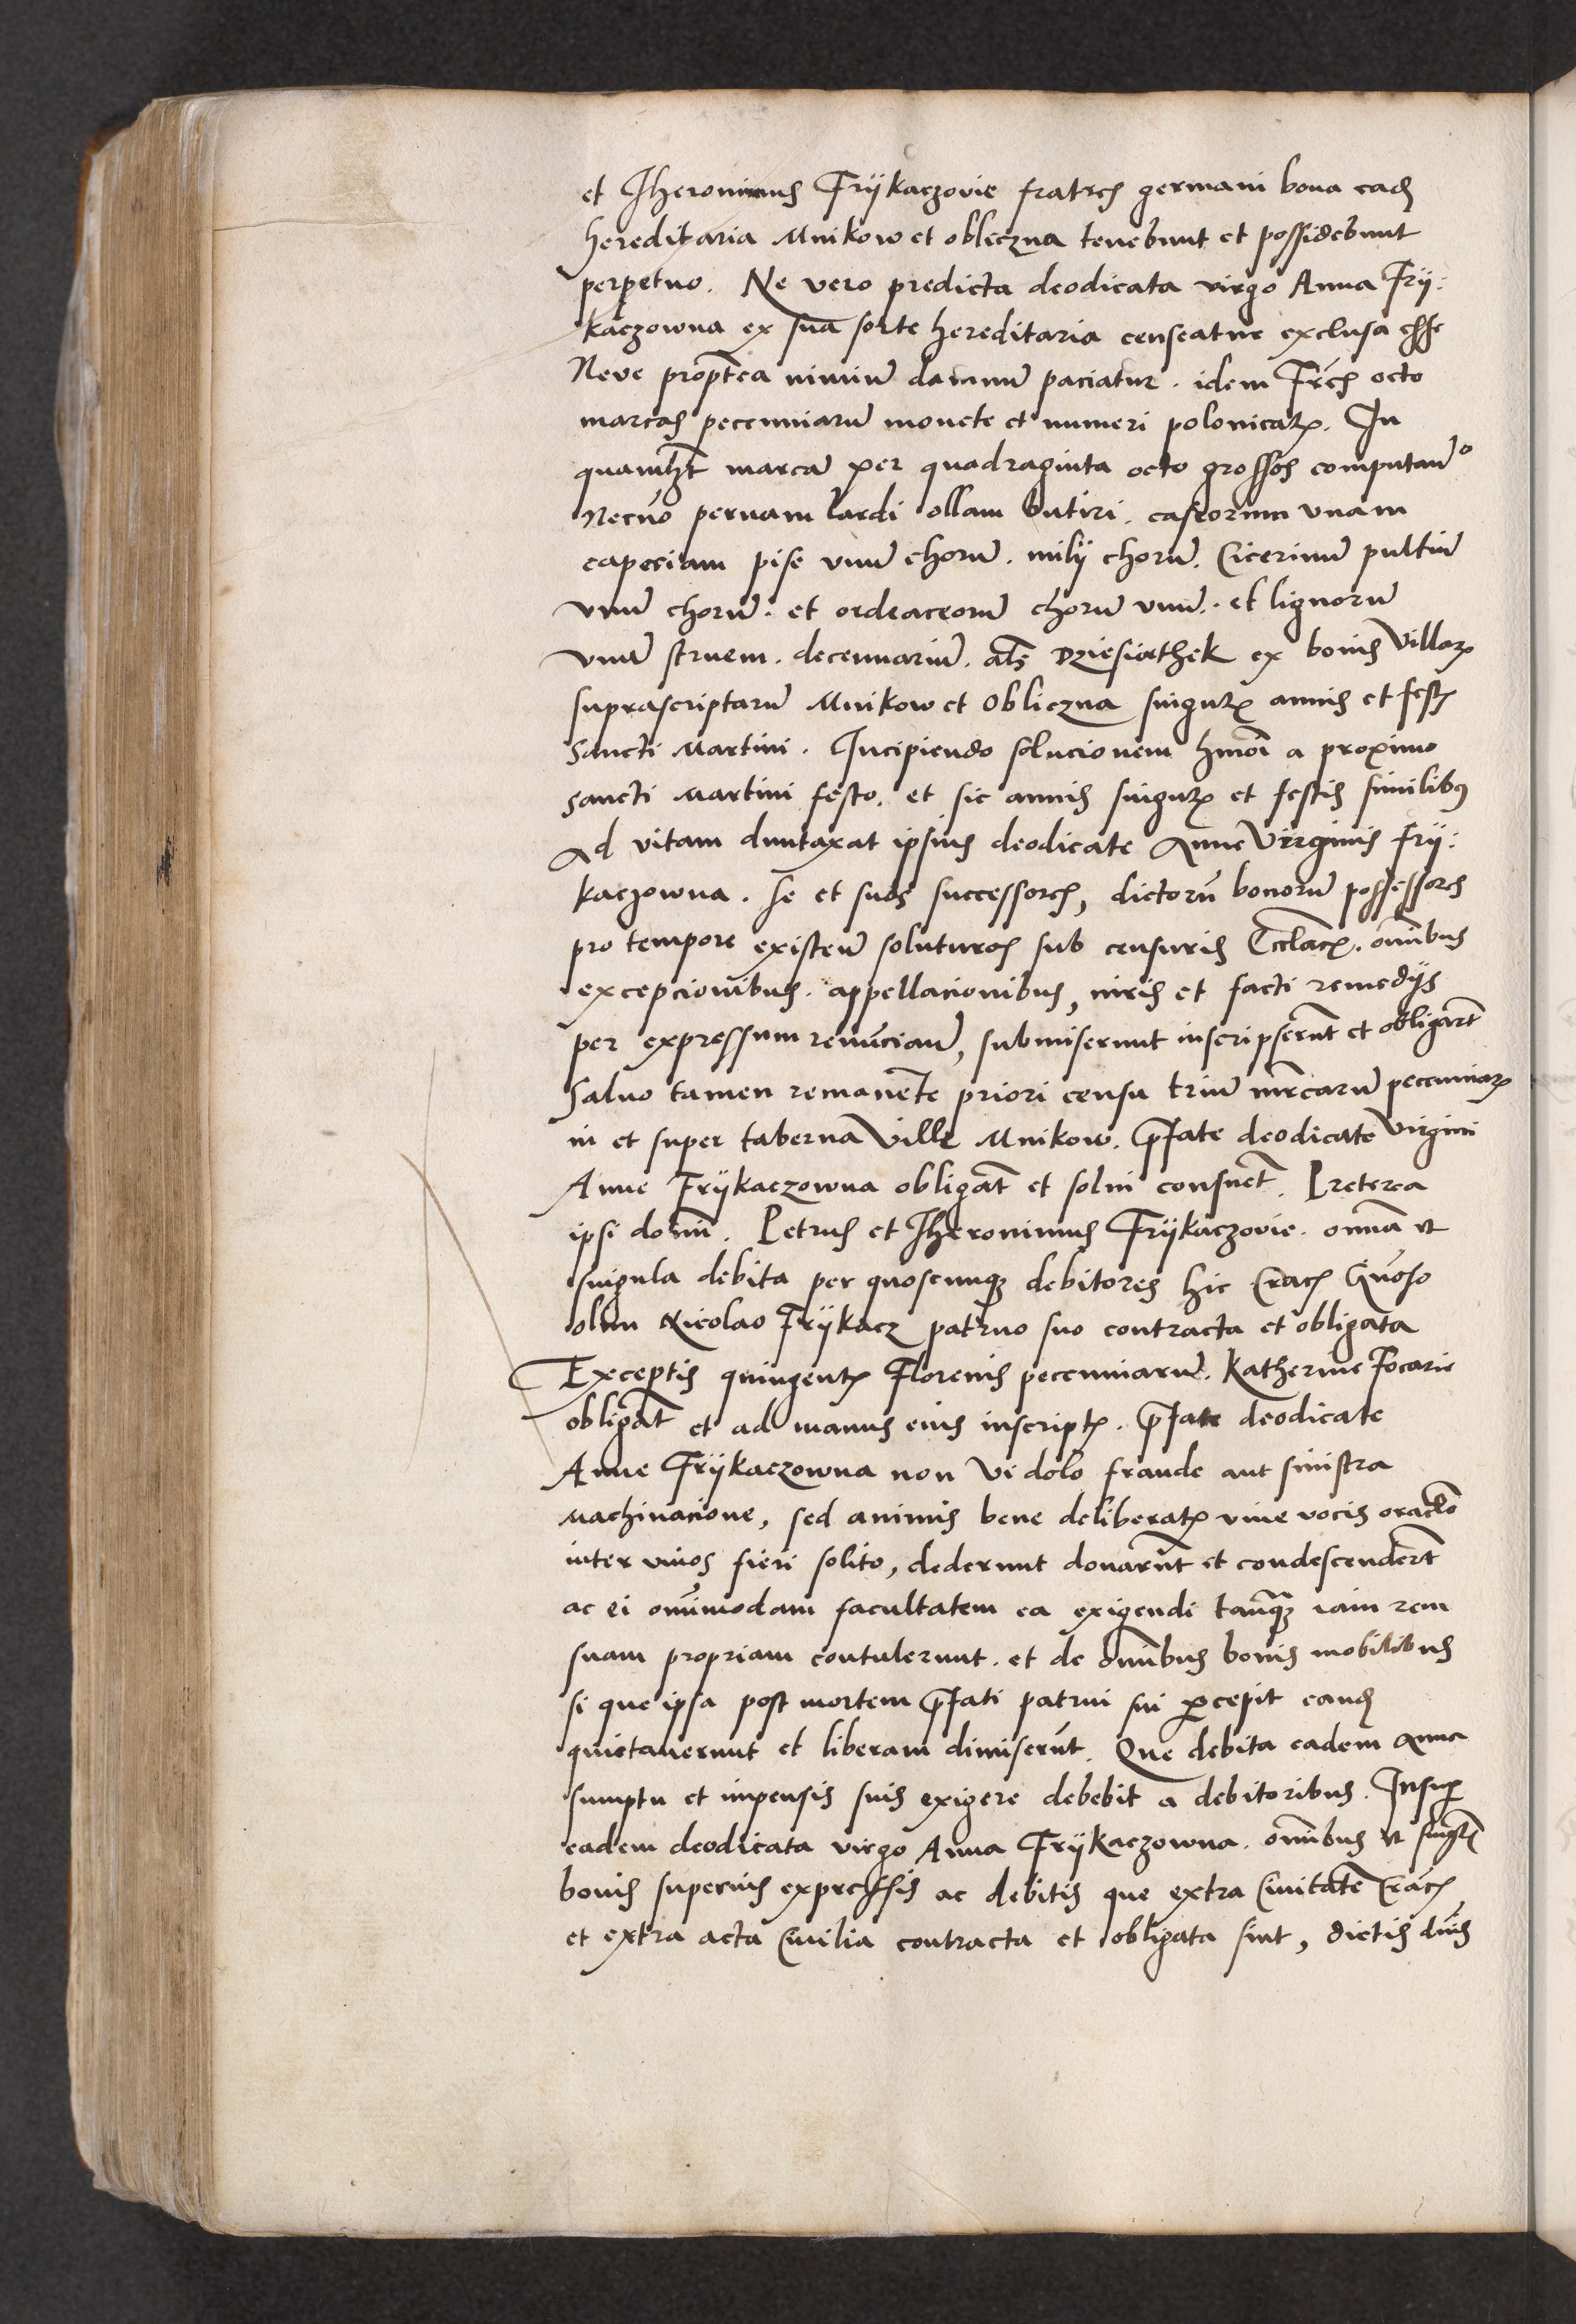 et Jheronimus Frijkaczovie fratres germani bona ead(em)
hereditaria Mnikow et obliczna tenebunt et possidebunt
perpetuo. Ne vero predicta deodicata virgo Anna Frij:
kaczowna ex sua sorte hereditaria censeatur exclusa esse
Neve propterea nimiu(m) damnu(m) paciatur. idem Fr(atr)es octo
marcas pecunniaru(m) monete et numeri polonicar(um). In
quamlib(e)t marca(m) per quadraginta octo grossos computan(d)o
Necno(n) pernam lardi ollam butiri. caseorum vnam
capeciam pise vnu(m) choru(m). milij choru(m). Cicerinu(m) pultiu(m)
vnu(m) choru(m). et ordeaceoru(m) choru(m) vnu(m). et lignoru(m)
vna(m) struem. decennariu(m). al(ia)s Dziesiathek ex bonis Villar(um)
suprascriptaru(m) Mnikow et Obliczna singul(is) annis et fest(is)
Sancti Martini. Incipiendo solucionem h(uius)mo(d)i a proximo
sancti Martini festo. et sic annis singul(is) et festis similibus
Ad vitam duntaxat ipsius deodicate Anne Virginis Frij:
kaczowna. se et suos successores, dictoru(m) bonoru(m) possessores
pro tempore existen(tes) soluturos sub censuris Eccl(esi)a(sti)c(is). omnibus
excepcionibus. appellacionibus, iuris et facti remedijs
per expressum renuncian(do), submiserunt inscripserunt et obligar(un)t
Saluo tamen remanente priori censu triu(m) m(a)rcaru(m) pecuniar(um)
in et super taberna Ville Mnikow. p(re)fate deodicate Virgini
Anne Frijkaczowna obligat(o) et solui consuet(o). Preterea
ipsi domi(ni). Petrus et Jheronimus Frijkaczovie. omnia et
singula debita per quoscunq(ue) debitores hic Crac(ovie) G(e)n(er)oso
olim Nicolao Frijkacz patruo suo contracta et obligata
Exceptis quingent(is) Florenis pecunniaru(m). Katherine Focarie
obligat(is) et ad manus eius inscript(is). p(re)fate deodicate
Anne Frijkaczowna non Vi dolo fraude aut sinistra
machinacione, sed animis bene deliberat(is) viue vocis orac(u)lo
inter viuos fieri solito, dederunt donaru(n)t et condescender(un)t
ac ei omnimodam facultatem ea exigendi tanq(uam) iam rem
suam propriam contulerunt. et de omnibus bonis mobilibus
si que ipsa post mortem p(re)fati patrui sui p(er)cepit eand(em)
quictauerunt et liberam dimiserunt. Que debita eadem Anna
sumptu et impensis suis exigere debebit a debitoribus. Insup(er)
eadem deodicata virgo Anna Frijkaczowna. omnibus et sing(u)l(is)
bonis superius expressis ac debitis que extra Ciuitate(m) Crac(oviensem)
et extra acta Ciuilia contracta et obligata sint, dictis d(omi)nis